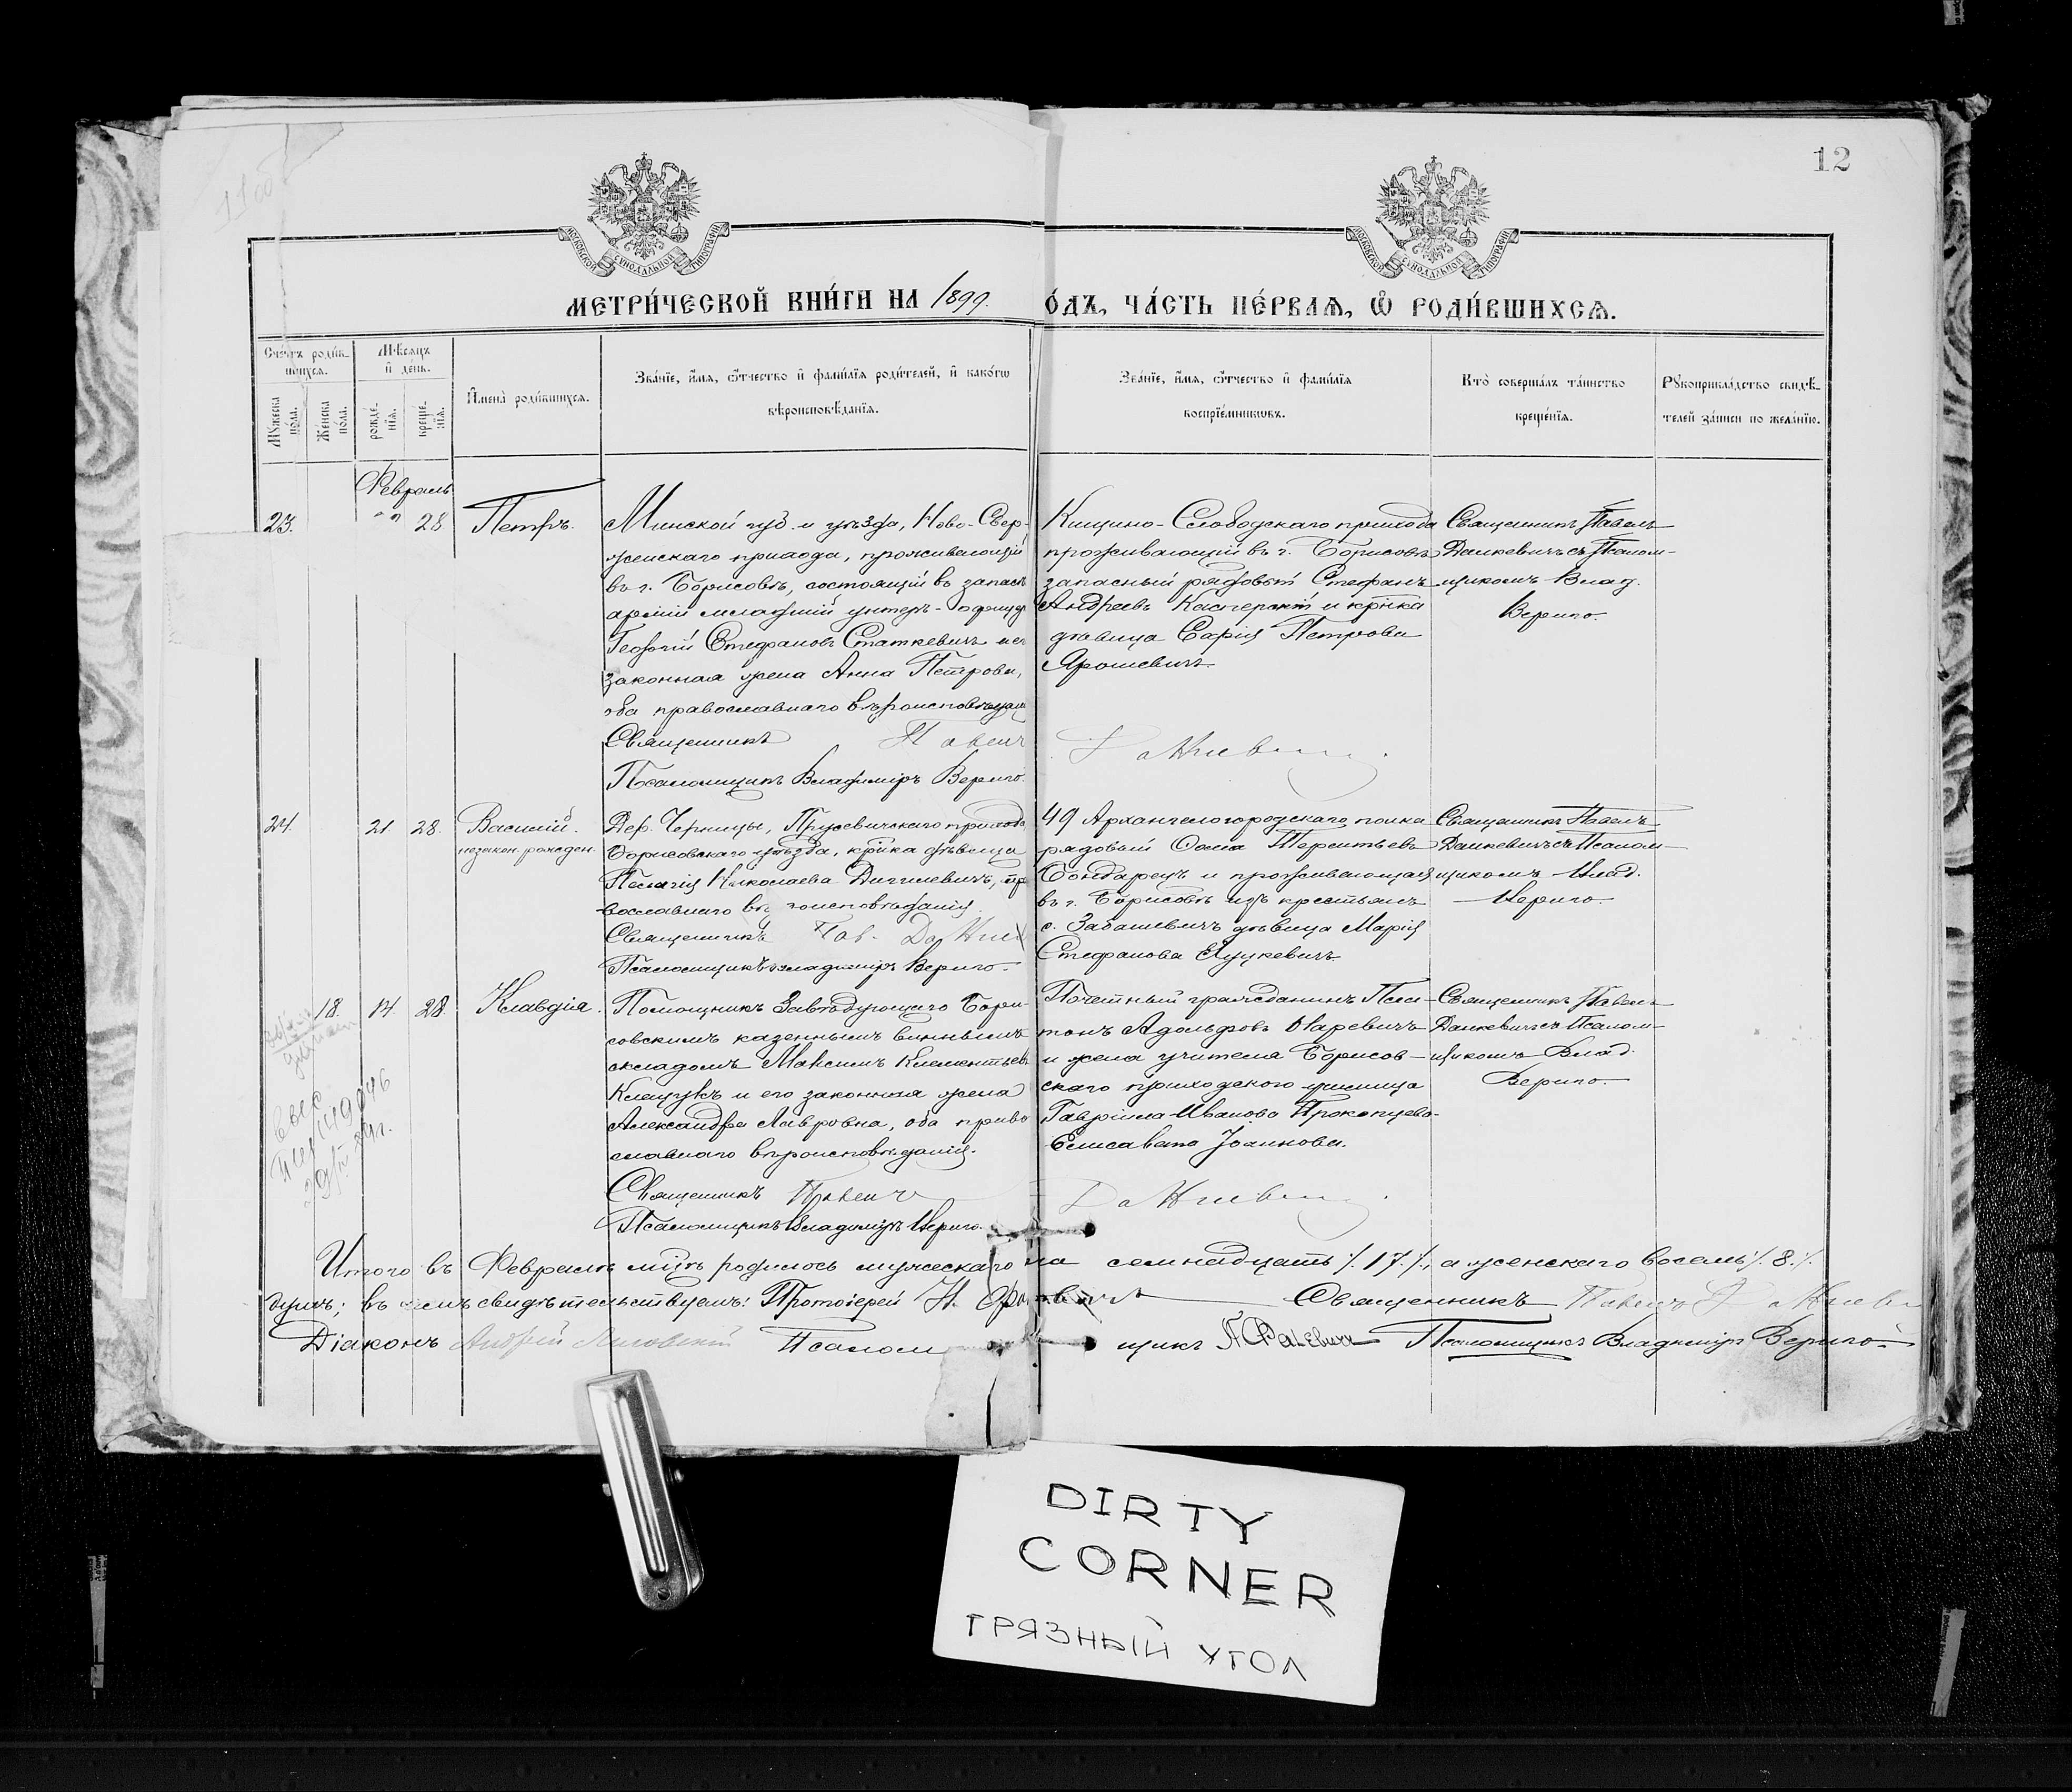 12
МОСКОВСКОЙ СѴНОДАЛЬНОЙ ТИПОГРАФІИ
МОСКОВСКОЙ СѴНОДАЛЬНОЙ ТИПОГРАФІИ
МЕТРИ́ЧЕСКОЙ КНИ́ГИ НА 1899. О́ДЪ, ЧА́СТЬ ПЕ́РВАѦ, Ѡ҆ РОДИ́ВШИХСѦ.
Сче́тъ роди́в-
шихся.
Мѣ́сяцъ
и҆ де́нь.
И҆мена̀ роди́вшихся.
Зва́нїе, и҆́мя, ѻ҆́тчество и҆ фами́лїя роди́телей, и҆ како́гѡ
вѣроисповѣ́данїя.
Зва́нїе, и҆́мя, ѻ҆́тчество и҆ фами́лїя
воспрїе́мникѡвъ.
Кто̀ соверша́лъ та́инство
креще́нїя.
Рꙋкоприкла́дство свидѣ́-
телей за́писи по жела́нїю.
Мꙋ́жеска
по́ла.
Же́нска
по́ла.
рожде́-
нїя.
креще́-
нїя.
Февраль
23. 28 Петръ.
Минской губ. и уѣзда, Ново-Свер-
женскаго прихода, проживающій
въ г. Борисовѣ, состоящій въ запасѣ
арміи младшій унтеръ-офицеръ
Георгій Стефановъ Статкевичъ и его
законная жена Анна Петрова,
оба православнаго вѣроисповѣданія
Священникъ Павелъ
Псаломщикъ Владиміръ Вериго.
Кищино-Слободскаго прихода
проживающій въ г. Борисовѣ
запасный рядовый Стефанъ
Андреевъ и крѣка
дѣвица Петрова
Ярошевичъ
Священникъ Павелъ
Данкевичъ съ Псалом-
щикомъ Влад.
Вериго.
24. 21 28. Василій.
незакон. рожден.
Дер. Черницы, прихода
Борисовскаго уѣзда, крѣка дѣвица
Пелагія Николаева пра
вославнаго вѣроисповѣданія.
Священникъ Пав.
Псаломщикъ Владиміръ Вериго.
49 Архангелогородскаго полка
рядовый Терентьевъ
Бондарецъ и проживающая
въ г. Борисовѣ изъ крестьянъ
с. Забашевичъ дѣвица Марія
Стефанова Луцкевичъ
Священникъ Павелъ
Данкевичъ съ Псалом-
щикомъ Влад.
Вериго.
18. 14. 28. Клавдія.
Помощникъ Завѣдующаго Бори-
совскимъ казеннымъ виннымъ
складомъ Максимъ Климентьевъ
Клещукъ и его законная жена
Александра Лавровна, оба право
славнаго вѣроисповѣданія.
Священникъ Павелъ
Псаломщикъ Владиміръ Вериго.
Почетный гражданинъ
Адольфовъ
и жена учителя Борисов-
скаго приходскаго училища
Гавріила Иванова Прокопцева-
Елисавета Іоаннова.
Священникъ Павелъ
Данкевичъ съ Псалом-
щикомъ Влад.
Вериго.
Итого въ Февралѣ мцѣ родилось мужескаго по ла семнадцать ./. 17 ./., а женскаго восемь ./. 8 ./.
душъ; въ чемъ свидѣтельствуемъ: Протоіерей Н. Священникъ Павелъ
Діаконъ Андрей Псалом щикъ Псаломщикъ Владиміръ Вериго
DIRTY
CORNER
ГРЯЗНЫЙ УГОЛ